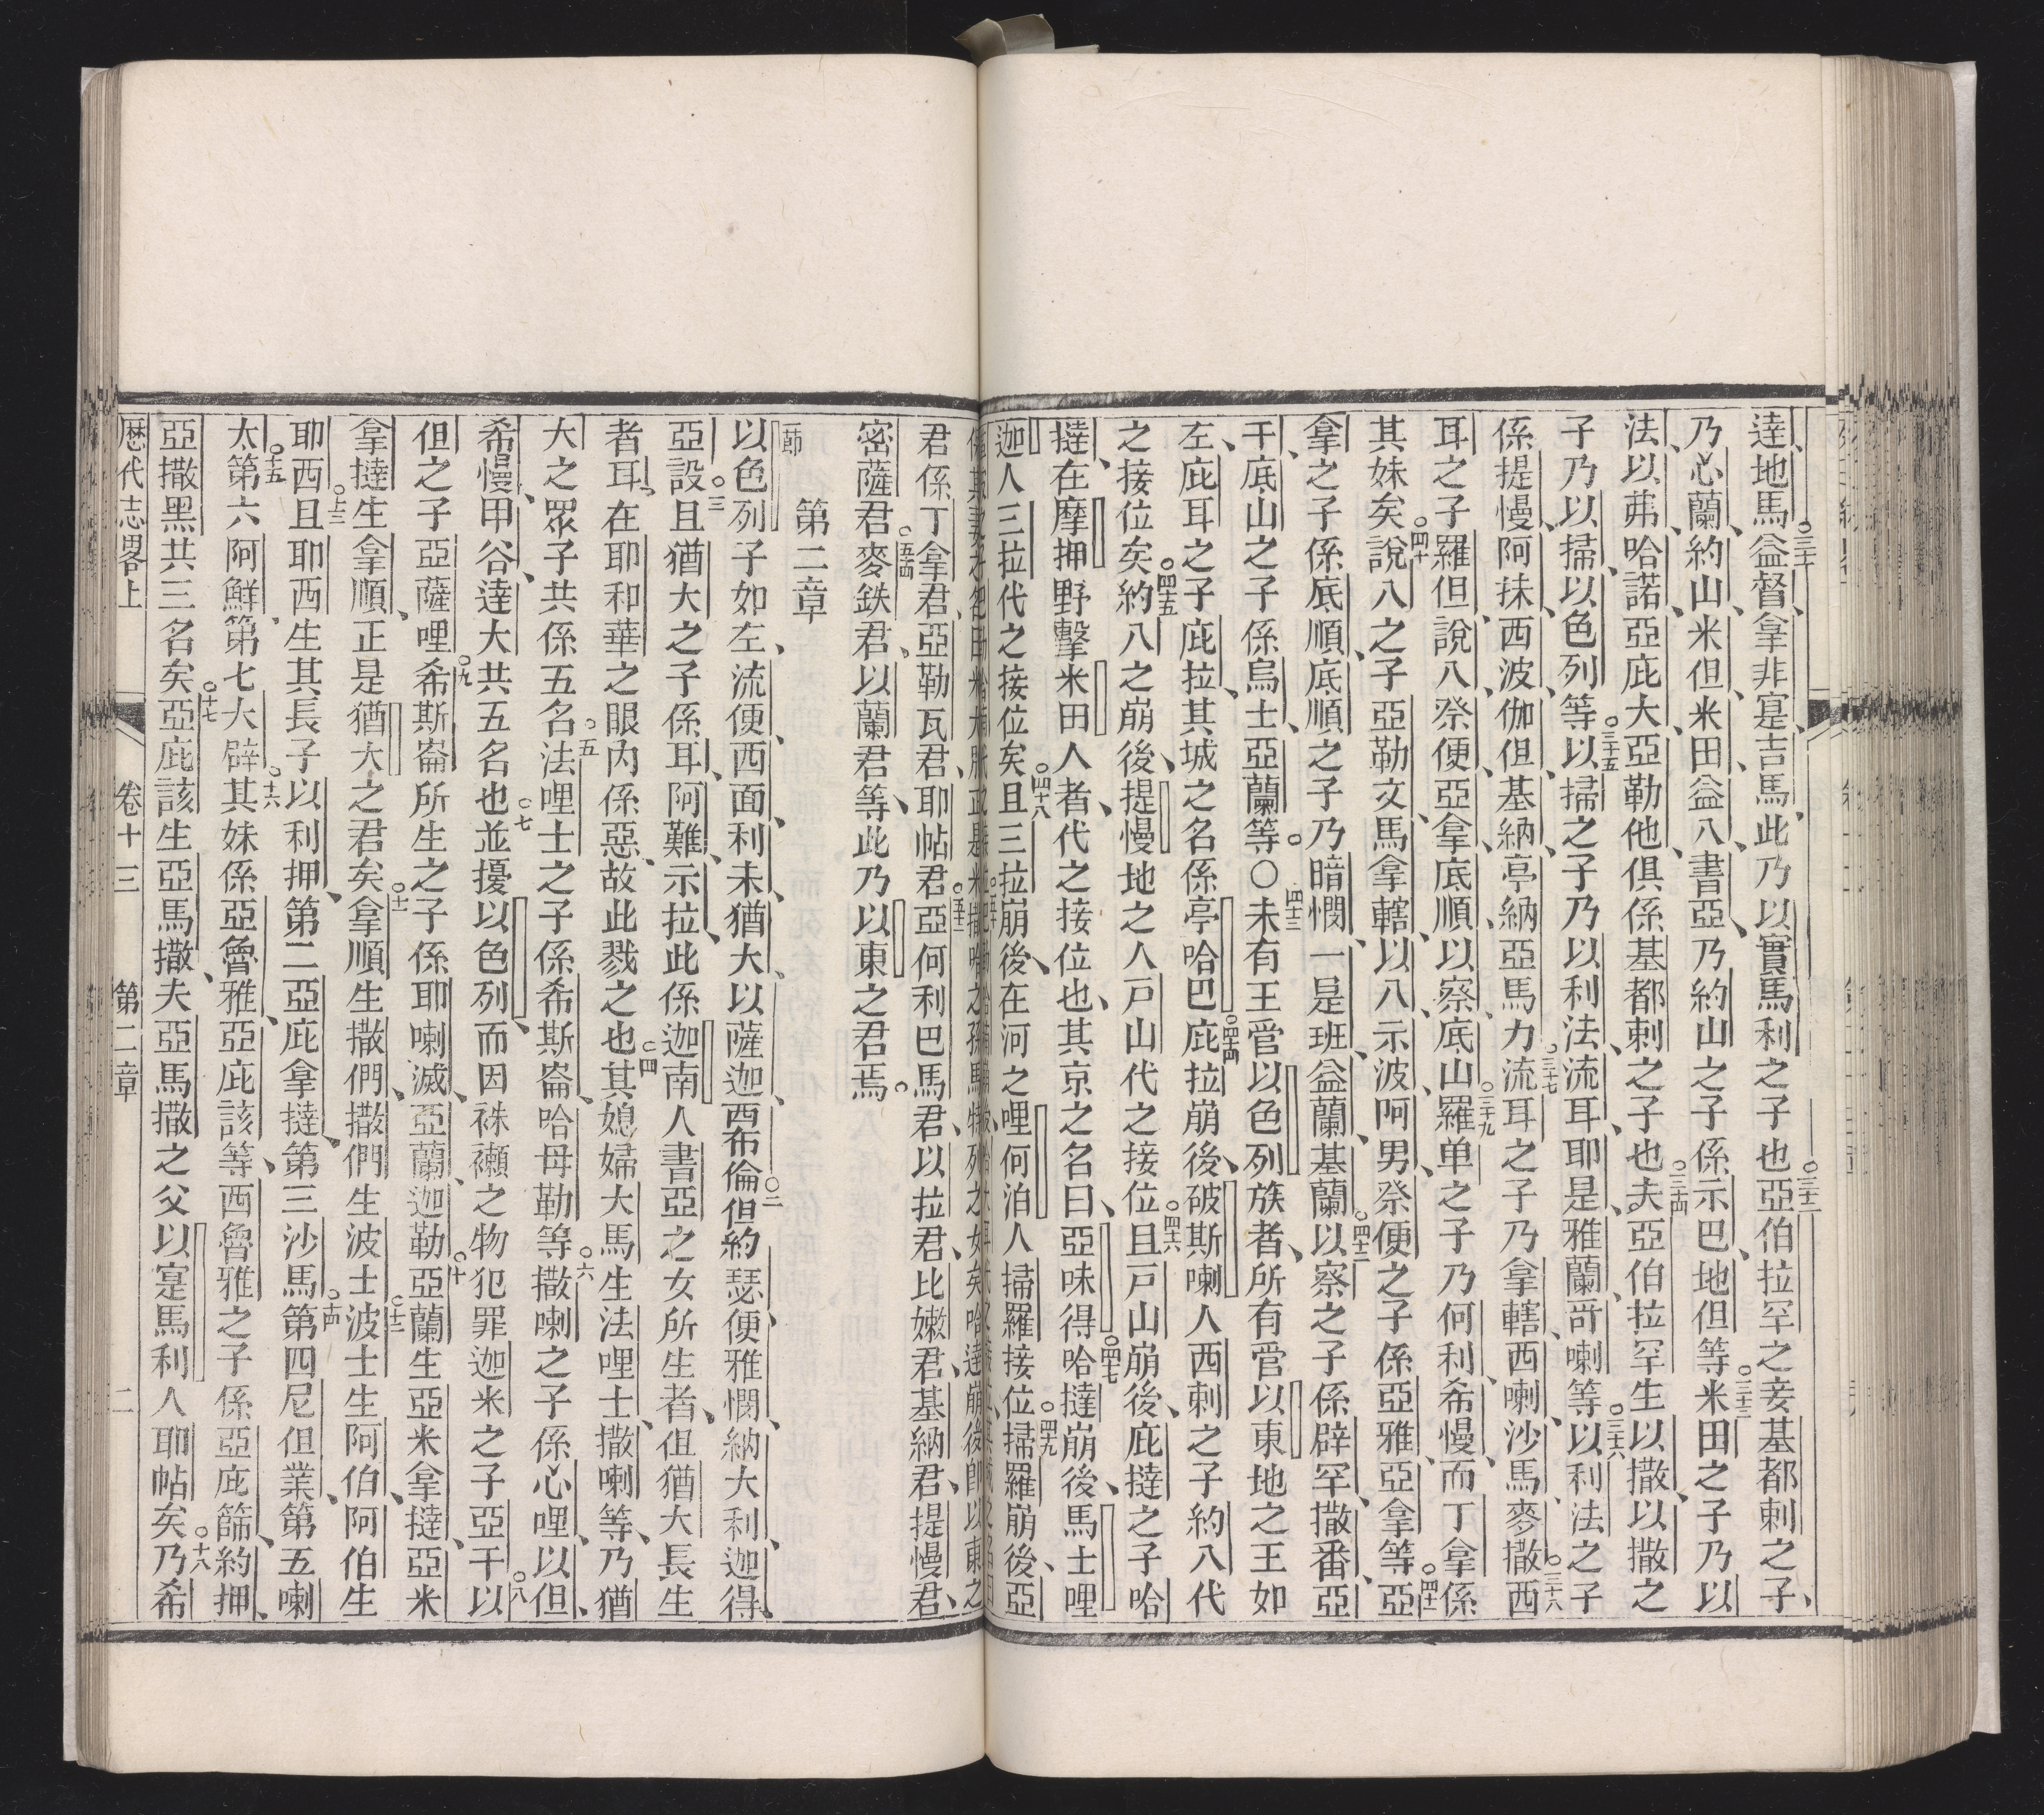 達地馬益督拿非寔吉馬此乃以實馬利之子也亞伯拉罕之妾基都剌之子
乃心蘭約山米但米田益八書亞乃約山之子係示巴地但等米田之子乃以
法以弗哈諾亞庇大亞勒他俱係基都剌之子也夫亞伯拉罕生以撒以撒之
子乃以掃以色列等以掃之子乃以利法流耳耶是雅蘭哥喇等以利法之子
係提慢阿抹西波伽但基納亭納亞馬力流耳之子乃拿轄西喇沙馬麥撒西
耳之子羅但說八祭便亞拿底順以察底山羅单之子乃何利希慢而丁拿係
其妹矣說八之子亞勒文馬拿轄以八示波阿男祭便之子係亞雅亞拿等亞
拿之子係底順底順之子乃暗憫一是班益蘭基蘭以察之子係辟罕撒番亞
干底山之子係烏士亞蘭等○未有王管以色列族者所有管以東地之王如
左庇耳之子庇拉其城之名係亭哈巴庇拉崩後破斯喇人西剌之子約八代
之接位矣約八之崩後提慢地之人戸山代之接位且戸山崩後庇撻之子哈
撻在摩押野擊米田人者代之接位也其京之名曰亞味得哈撻崩後馬士哩
迦人三拉代之接位矣且三拉崩後在河之哩何泊人掃羅接位掃羅崩後亞
君係丁拿君亞勒瓦君耶帖君亞何利巴馬君以拉君比嫩君基納君提慢君
密薩君麥鉄君以蘭君等此乃以東之君焉
第二章
一節
以色列子如左流便西面利未猶大以薩迦西布倫但約瑟便雅憫納大利迦得
亞設且猶大之子係耳阿難示拉此係迦南人書亞之女所生者但猶大長生
者耳在耶和華之眼內係惡故此戮之也其媳婦大馬生法哩士撒喇等乃猶
大之眾子共係五名法哩士之子係希斯崙哈母勒等撒喇之子係心哩以但
希慢甲谷達大共五名也並擾以色列而因袾襰之物犯罪迦米之子亞干以
但之子亞薩哩希斯崙所生之子係耶喇滅亞蘭迦勒亞蘭生亞米拿撻亞米
拿撻生拿順正是猶大之君矣拿順生撒們撒們生波士波士生阿伯阿伯生
耶西且耶西生其長子以利押第二亞庇拿撻第三沙馬第四尼但業第五喇
太第六阿鮮第七大辟其妹係亞魯雅亞庇該等西魯雅之子係亞庇篩約押
亞撒黑共三名矣亞庇該生亞馬撒夫亞馬撒之父以寔馬利人耶帖矣乃希
厯代志畧上 卷十三 第二章 二